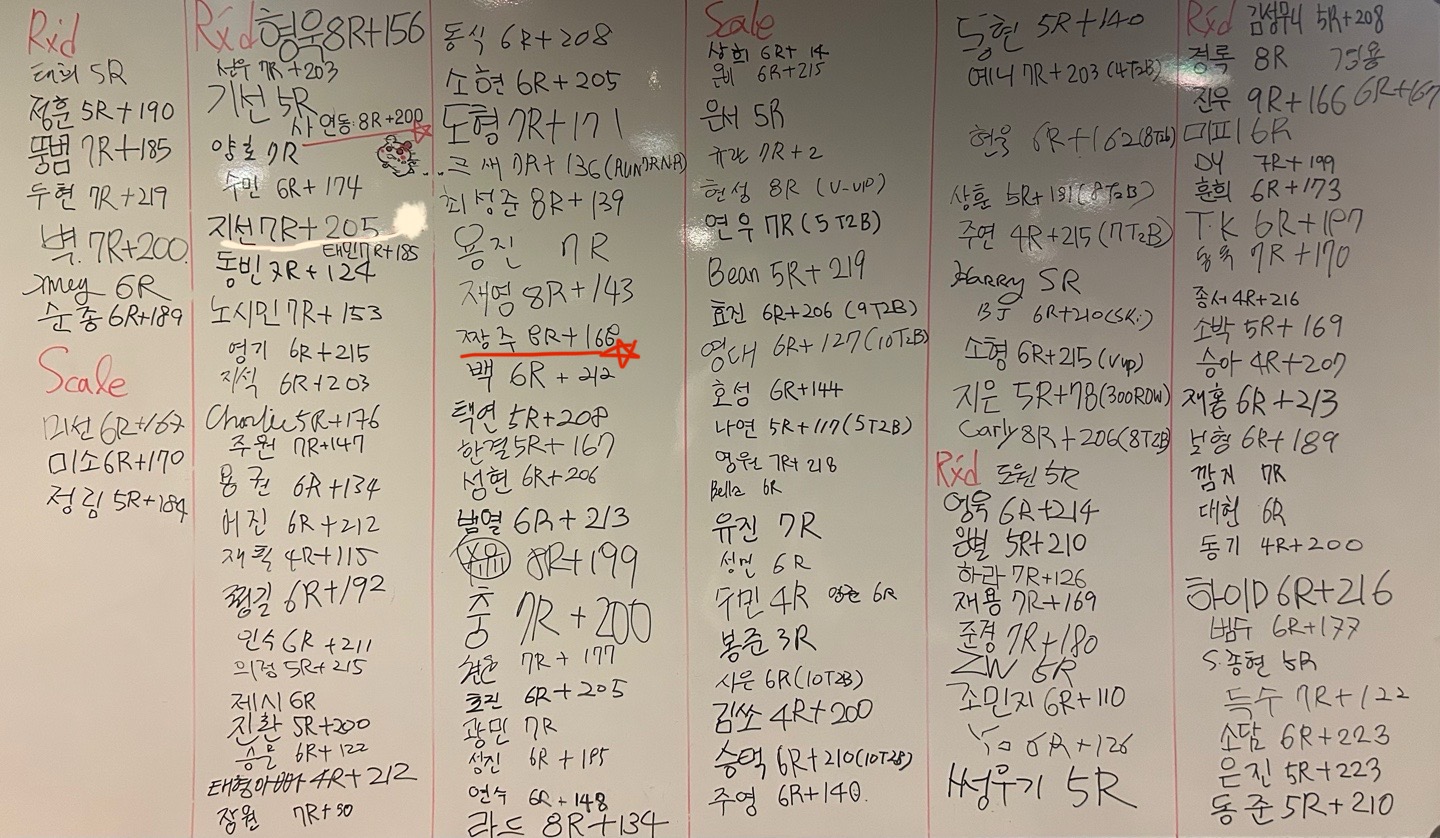 Rxd
태희 5R
정훈 5R+190
뚱범 7R+185
두현 7R+219
벽. 7R+200
mey 6R
순종 6R+189
Scale
미선 6R+167
미소 6R+170
정림 5R+184
Rx'd 형욱 8R+156
선우 7R+203
기선 5R
사 연동: 8R+200
양호 7R
수민 6R+174
지선 7R+205
태민 7R+185
동빈 7R+124
노시민 7R+153
영기 6R+215
지석 6R+203
Charlie 5R+176
주원 7R+147
용권 6R+134
어진 6R+212
재훈 4R+115
찡길 6R+192
인수 6R+211
의정 5R+215
제시 6R
진환 5R+200
승문 6R+122
태형아빠 4R+212
장원 7R+50
동식 6R+208
소현 6R+205
도형 7R+171
...크새 7R+136(RUN
최성준 8R+139
용진 7R
재영 8R+143
짱주 8R+168
백 6R+212
택연 5R+208
한결 5R+167
섬현 6R+206
범열 6R+213
8R+199
중 7R+200
7R+177
효진 6R+205
광민 7R
성진 6R+195
연수 6R+148
라드 8R+134
Scale
상희 6R+14
은비 6R+215
은서 5R
규관 7R+2
현성 8R (V-up)
연우 7R (5T2B)
Bean 5R+219
효진 6R+206 (9T2B)
영대 6R+127(10T2B)
호섬 6R+144
나연 5R+117(5T2B)
영원 7R+218
Bella 6R
유진 7R
성먼 6R
두민 4R 영은 6R
봉준 3R
사은 6R(10T2B)
김쏘 4R+200
승택 6R+210(10T2B)
주영 6R+140.
동현 5R+140
예니 7R+203 (4T2B)
현욱 6R+162(8T2b)
상훈 5R+131(8T2B)
주연 4R+215(7T2B)
Harry 5R
BJ 6R+210(SKi)
소형 6R+215(Vup)
지은 5R+78(300ROW)
Carly 8R+206(8T2B)
Rx'd 도원 5R
영욱 6R+214
은별 5R+210
하라 7R+126
재용 7R+169
준경 7R+180
ZW 6R
조민지 6R+110
6R+126
썽우기 5R
Rx'd 김성무니 5R+208
경록 8R 경용
진우 9R+166 6R+167
미피 6R
DY 7R+199
훈희 6R+173
T.K 6R+197
동욱 7R+170
종서 4R+216
소박 5R+169
승아 4R+207
재홍 6R+213
보형 6R+189
깜지 7R
대현 6R
동기 4R+200
하이D 6R+216
범수 6R+177
S.종현 5R
득수 7R+122
소담 6R+223
은진 5R+223
동준 5R+210